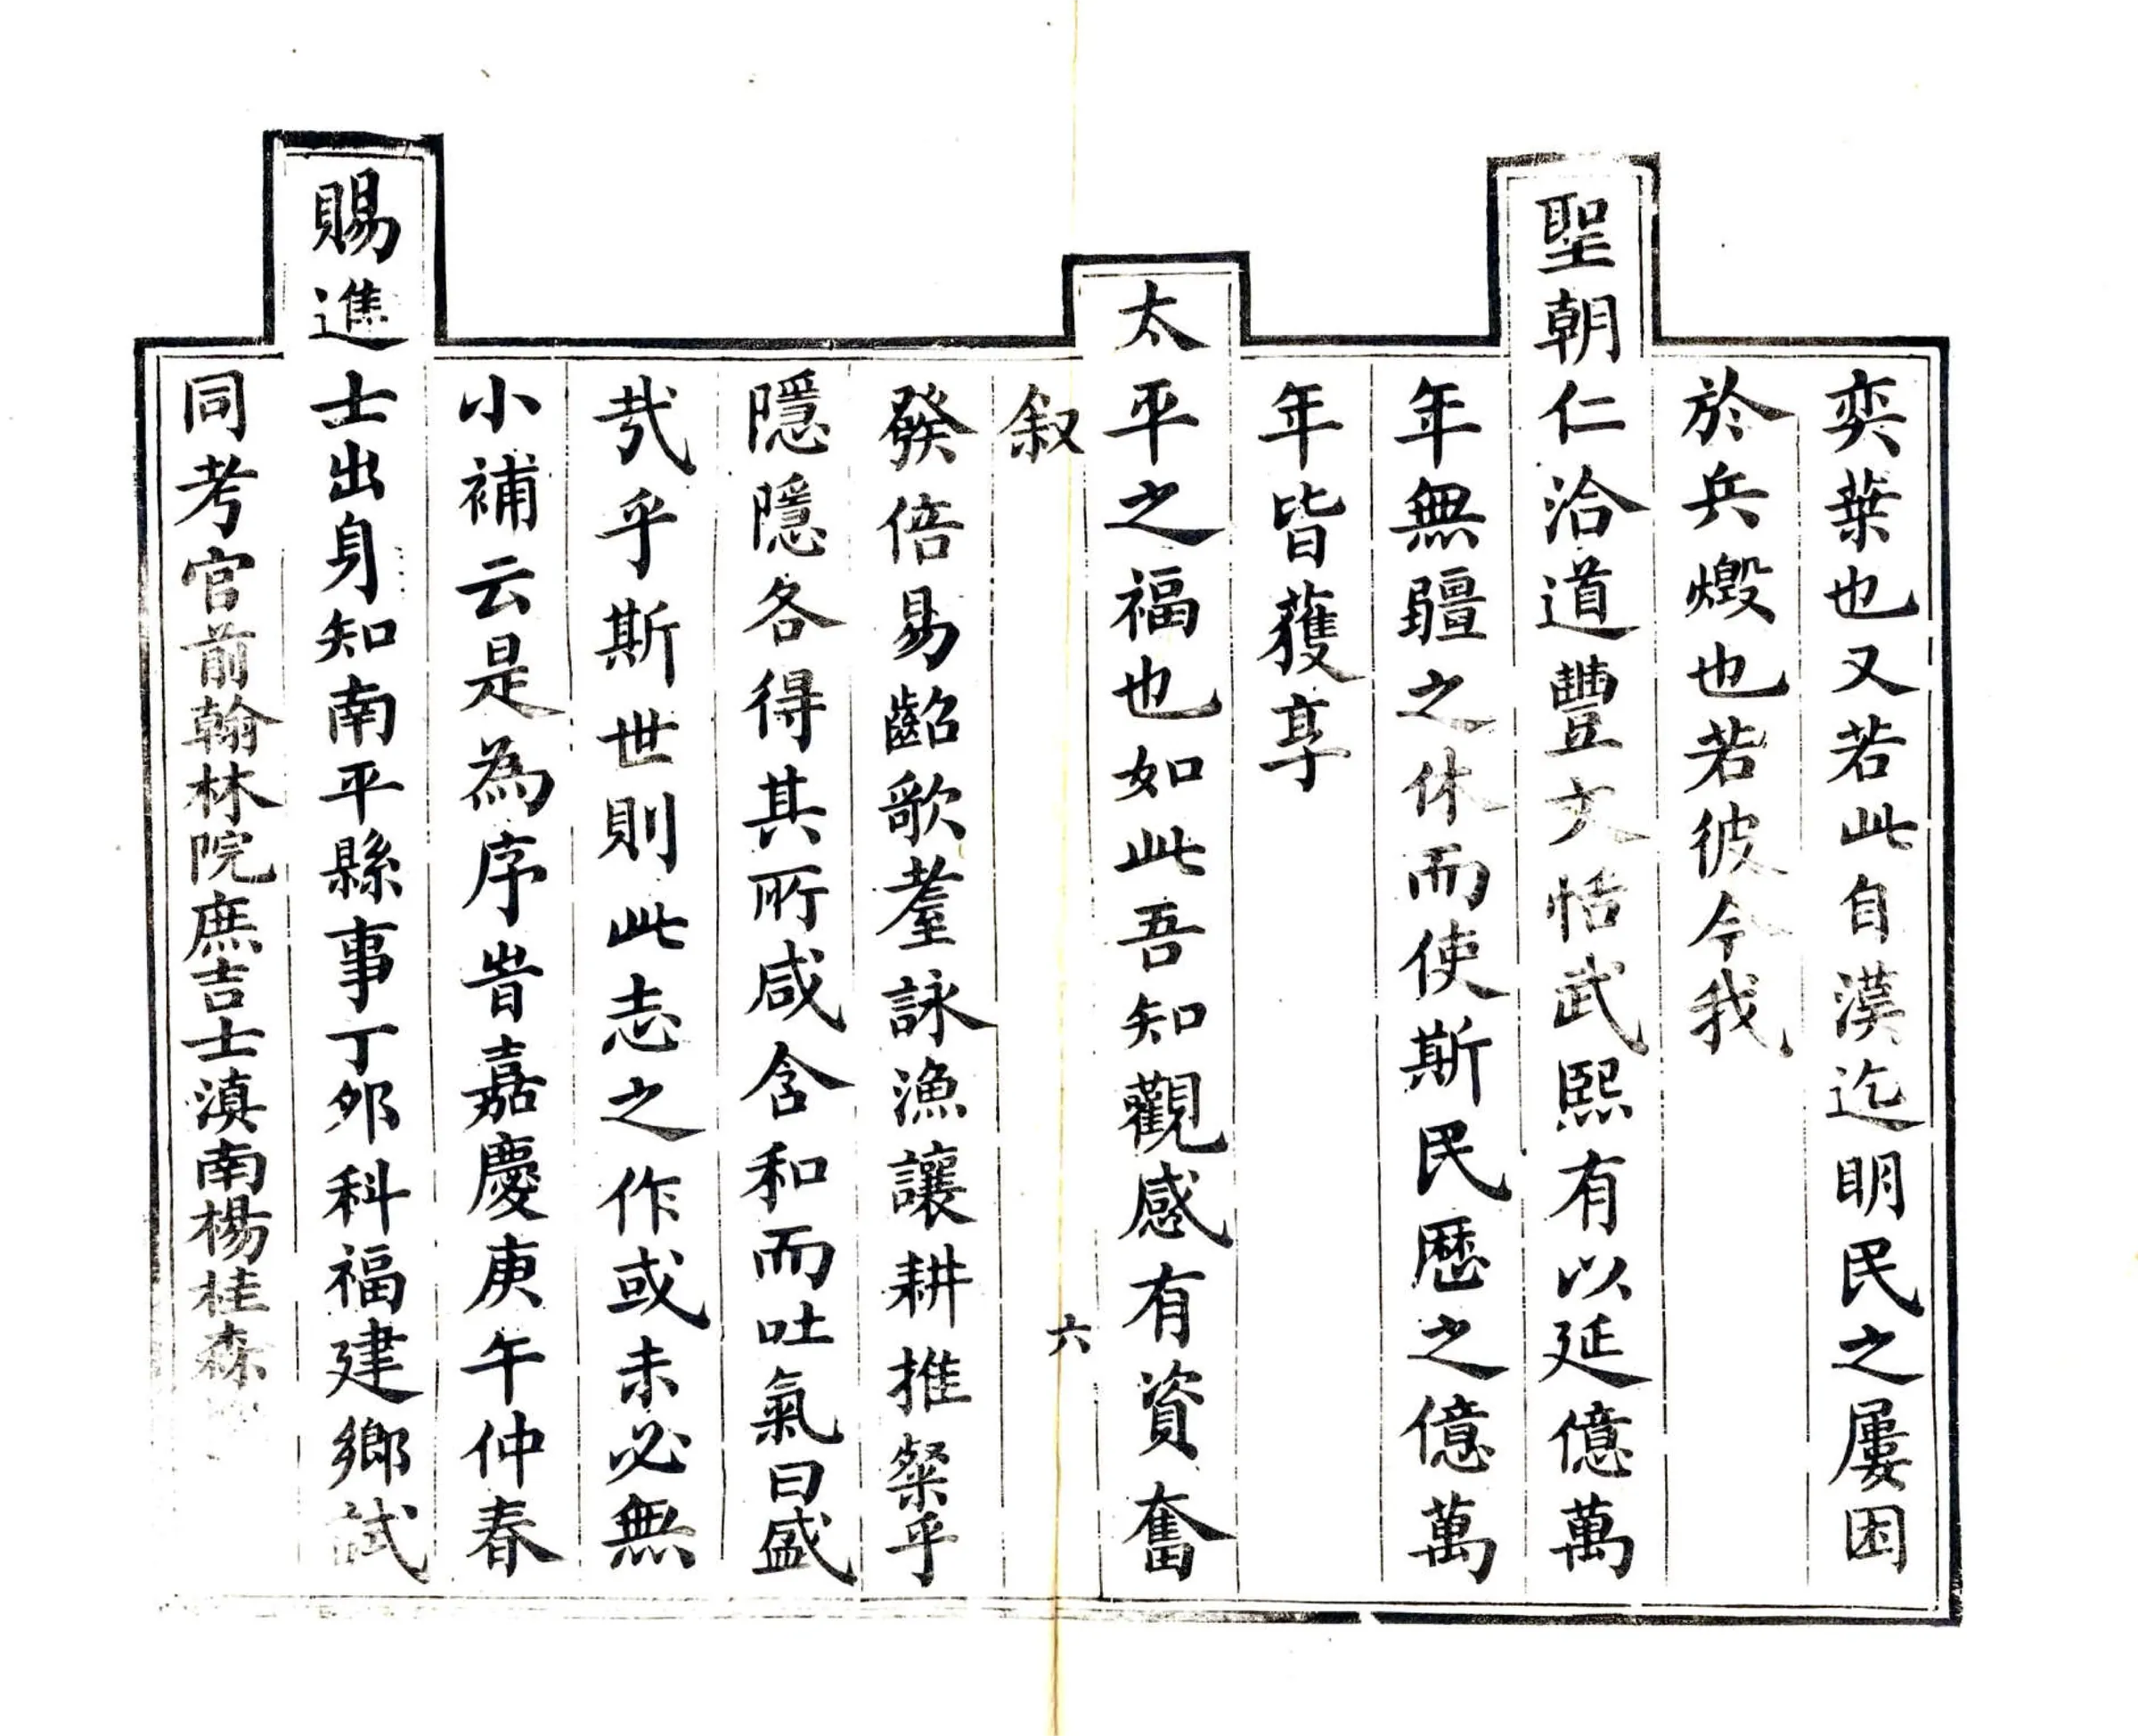 奕葉也又若此自漢迄明民之屢困
於兵燬也若彼今我
聖朝仁洽道豐文恬武熙有以延億萬
年無疆之休而使斯民歷之億萬
年皆獲享
太平之福也如此吾知觀感有資奮
叙
六
發倍易齠歌耋詠漁讓耕推粲乎
隱隱各得其所咸含和而吐氣曰盛
㢤乎斯世則此志之作或未必無
小補云是為序旹嘉慶庚午仲春
賜進士出身知南平縣事丁夘科福建鄉試
同考官前翰林院庶吉士滇南楊桂森